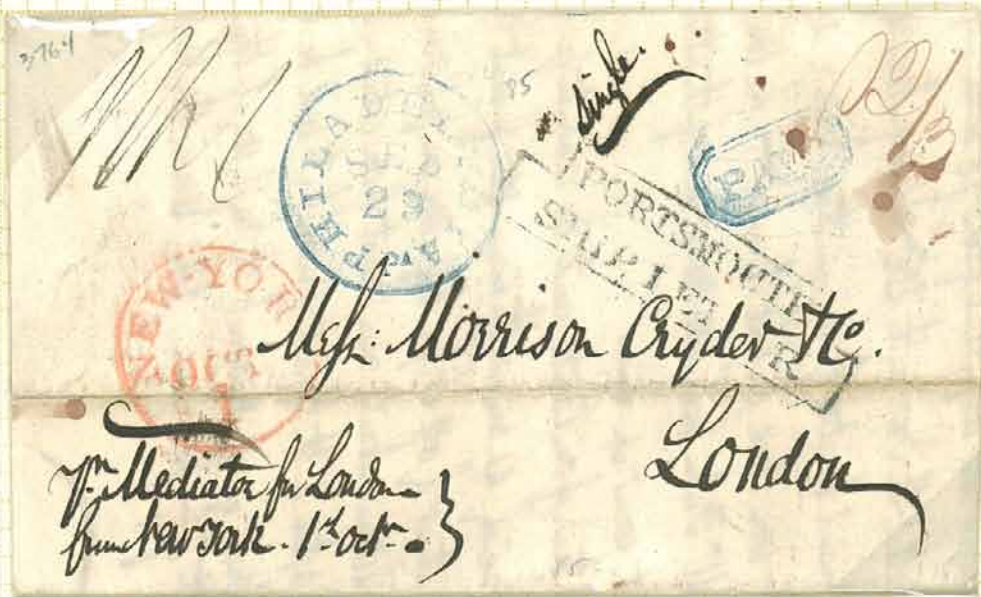 3764
85
single.
PHILADELPHIA Pa
SEP
29
PAID
PORTSMOUTH
SHIP LETTER
NEW-YORK
OCT
1
Messrs: Morrison Cryder & Co.
London
pr. Mediator for London
from New York. 1st Octr.